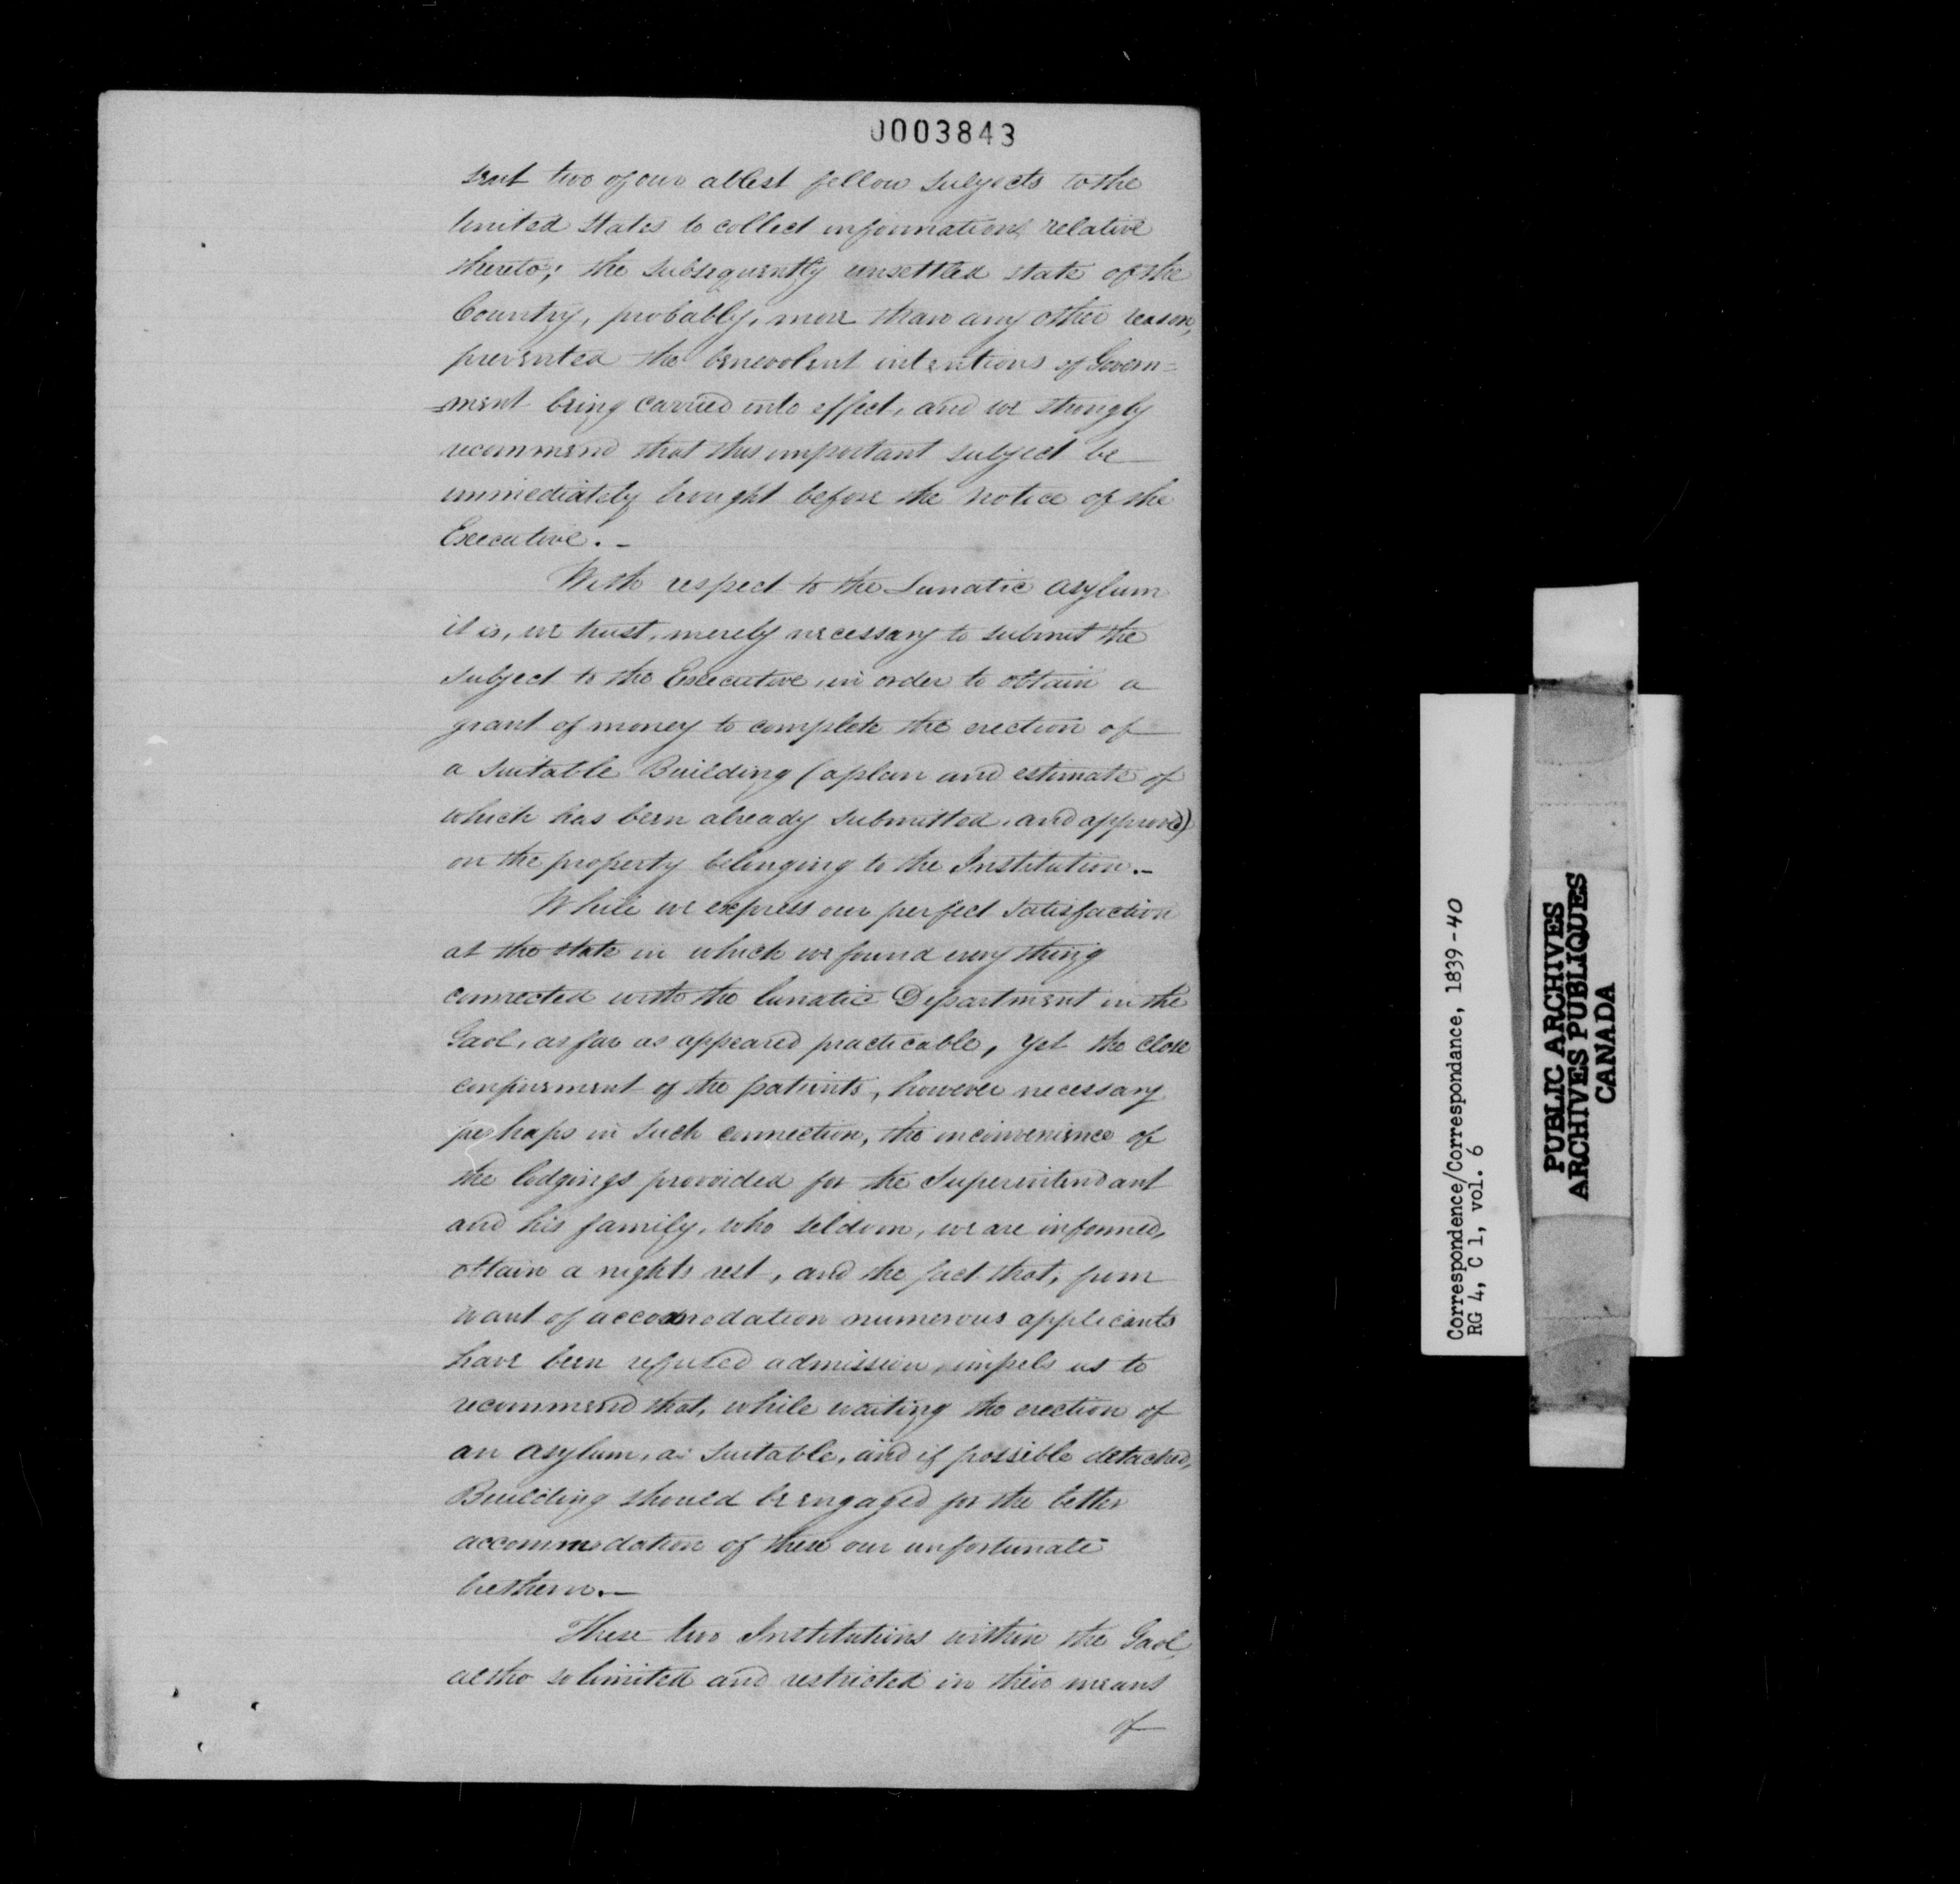 0003843
sent two of our ablest fellow subjects to the
United States to collect information relative
thereto; the subsequently unsettled state of the
Country, probably, more than any other reason,
prevented the benevolent intentions of Govern=
=ment being carried into effect, and we strongly
recommend that this important subject be
immediately brought before the notice of the
Executive. _
With respect to the Lunatic Asylum
it is, we trust, merely necessary to submit the
subject to the Executive, in order to obtain a
grant of money to complete the erection of
a suitable Building (a plan and estimate of
which has been already submitted, and approved)
on the property belonging to the Institution._
While we express our perfect satisfaction
at the state in which we found every thing
connected with the lunatic Department in the
Gaol, as far as appeared practicable, yet the close
confinement of the patients, however necessary
perhaps in such connection, the inconvenience of
the lodgings provided for the Superintendant
and his family, who seldom, we are informed,
obtain a nights rest, and the fact that, from
want of accomodation numerous applicants
have been refused admission, impels us to
recommend that, while waiting the erection of
an asylum, a suitable, and if possible detached,
Building should be engaged for the better
accommodation of these our unfortunate
bretheren._
These two Institutions within the Gaol,
altho so limited and restricted in their means
of
Correspondence/Correspondance, 1839-40
RG 4, C 1, vol. 6
PUBLIC ARCHIVES
ARCHIVES PUBLIQUES
CANADA